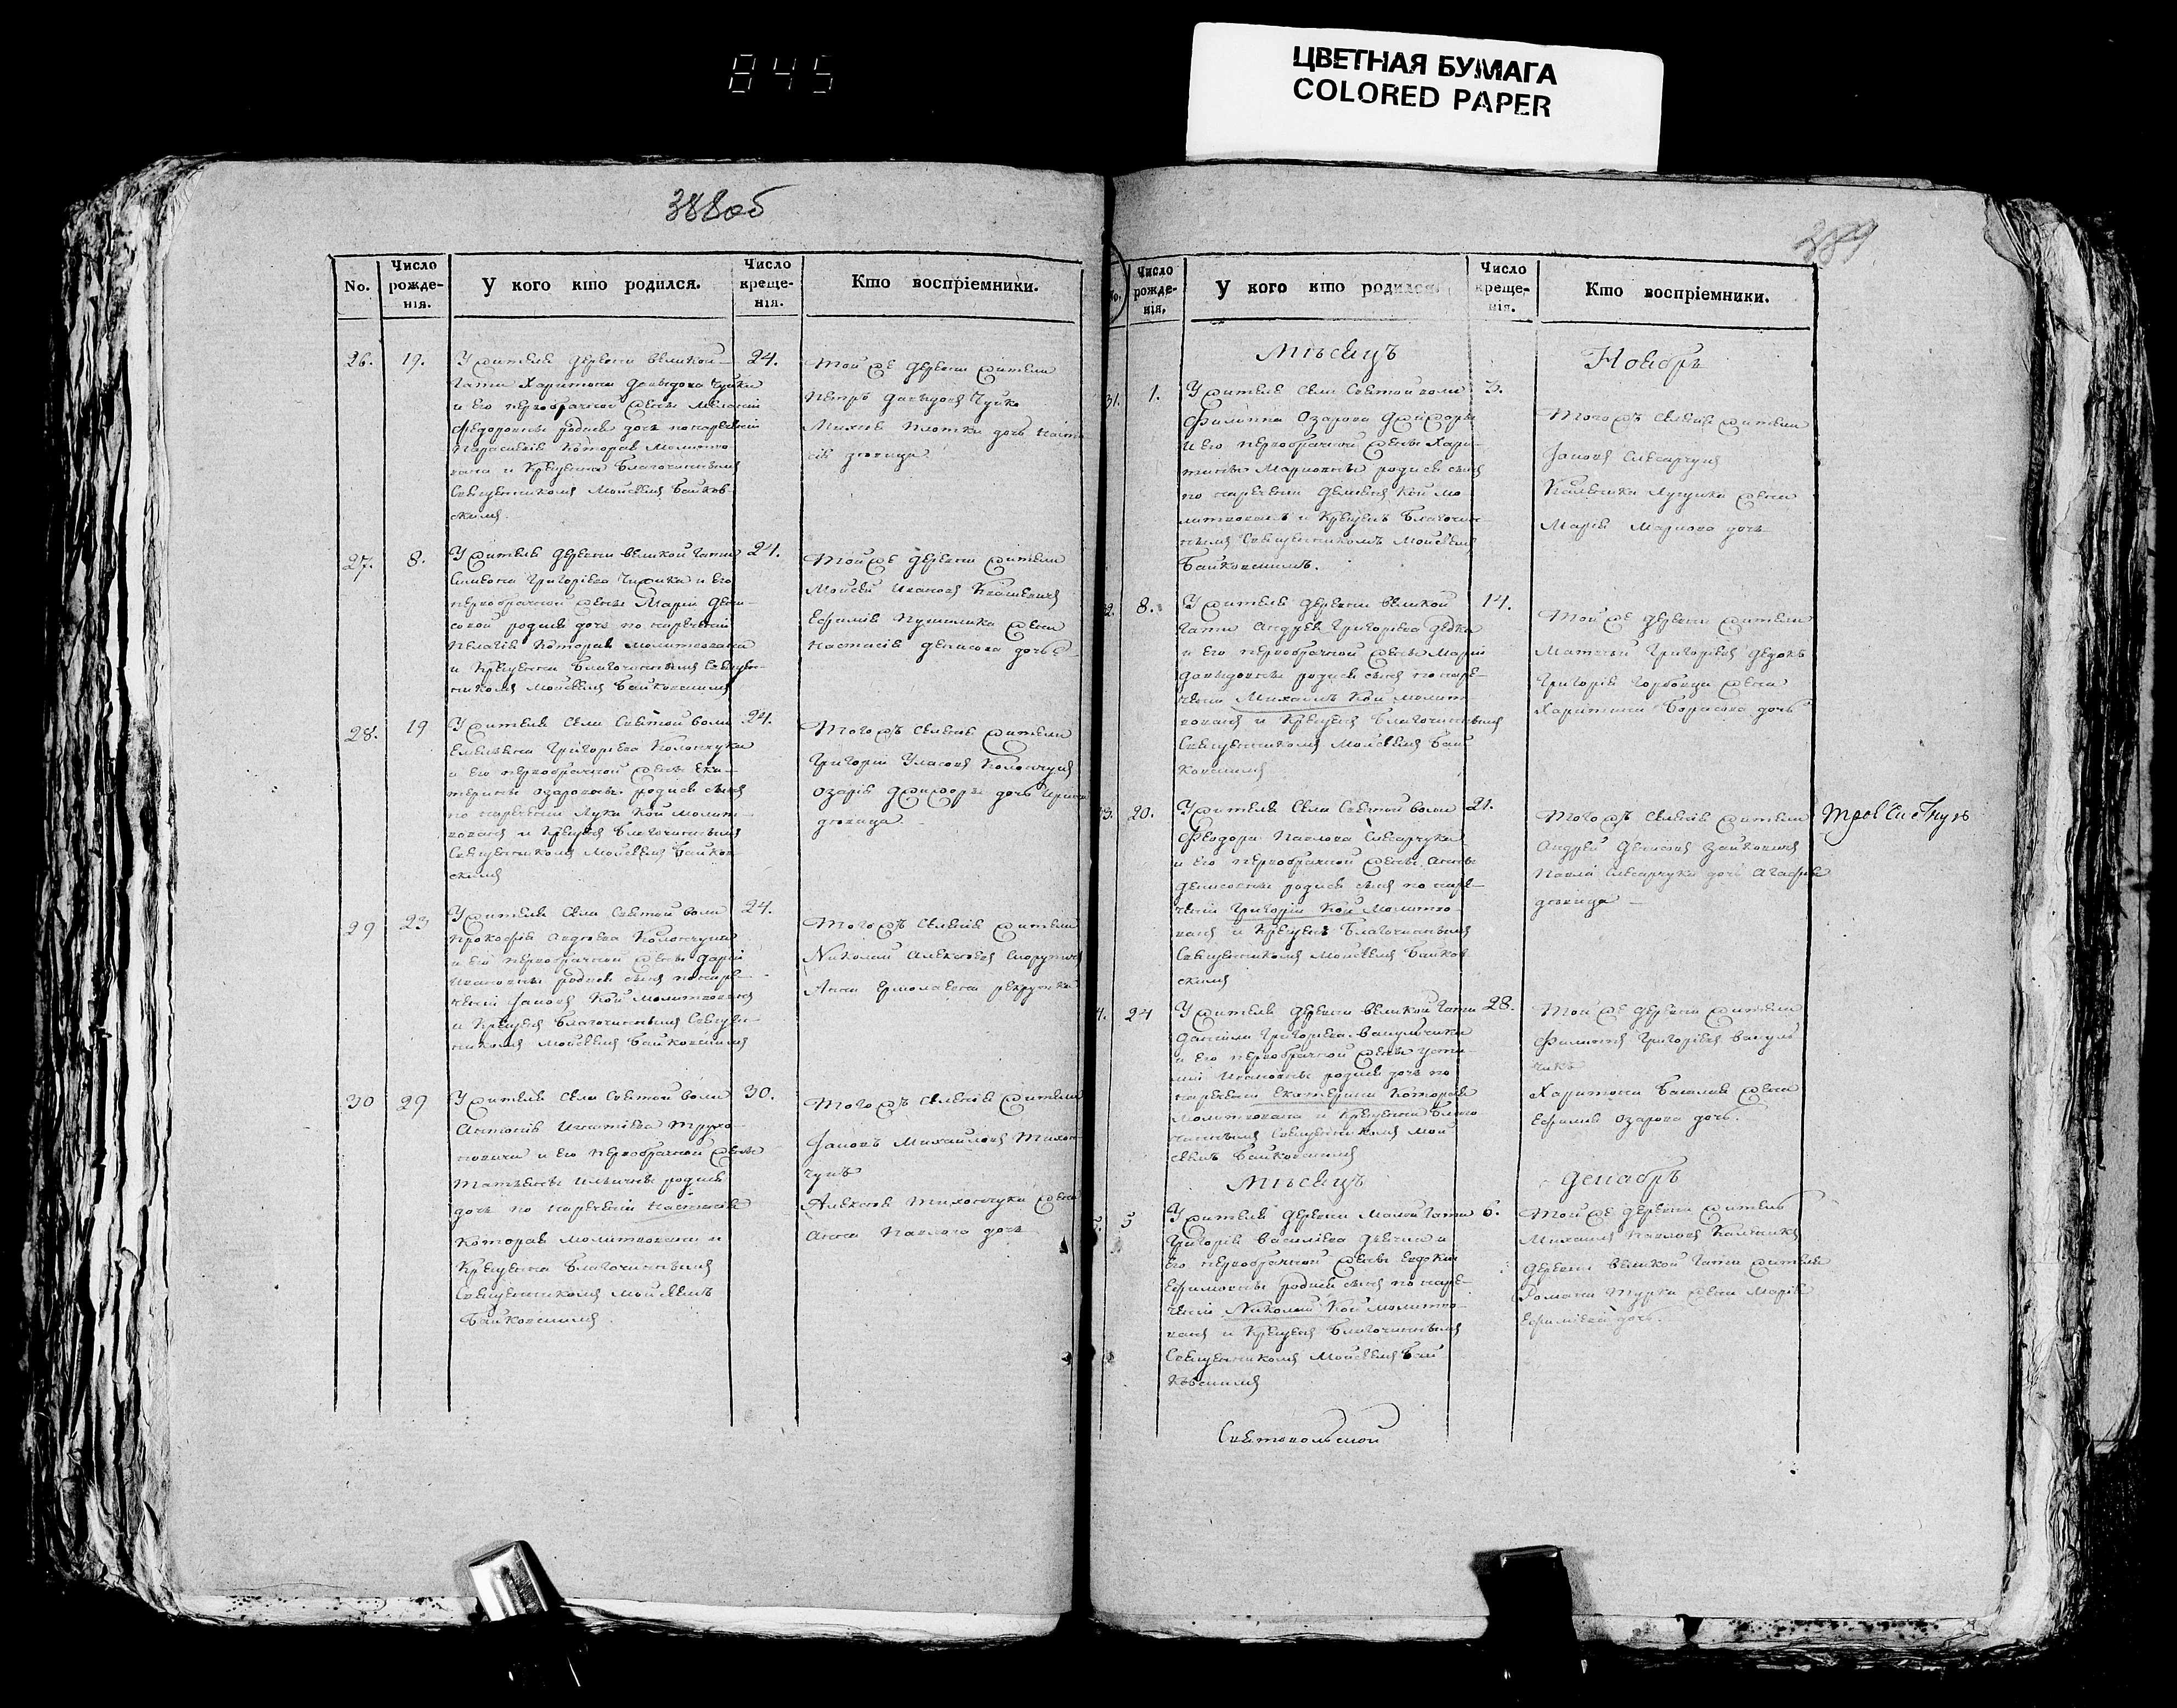 845
ЦВЕТНАЯ БУМАГА
COLORED PAPER
388об
No.
Число рожде-нія.
У кого кто родился.
Число креще-нія.
Кто воспріемники.
26.
19.
У жителя деревни Великой
Гати Харитона Давыдова Чуйка
и его первобрачной жены Меланіи
Федоровны родися дочь по наречени
Парасковія которая молитво
вана и крещена благочиннымъ
Священникомъ Моисеемъ Байков
скимъ.
24.
Той же деревни жители
Петръ Давыдовъ Чуйка
дочь Наста
сія девица
27.
8.
У жителя деревни Великой Гати
Григорева и его
первобрачной жены Маріи Дени
совой родися дочь по наречени
Пелагія которая молитвована
и крещена благочиннымъ Священ
никомъ Моисеемъ Байковскимъ
24.
Той же деревни жители
Моисей Ивановъ
жена
Настасія Денисова дочь
28.
19
У жителя села Святой Воли
Григорева Колончука
и его первобрачной жены Ека
терины Озаровны родися сынъ
по наречени Лука кой молит
вованъ и крещенъ благочиннымъ
Священникомъ Моисеемъ Байков
скимъ
24.
Того жъ селенія жители
Григорій Уласовъ Колончукъ
дочь
девица
29
23
У жителя села Святой Воли
Прокофія Колончука
и его первобрачной жены Даріи
Ивановны родися сынъ по наре
чени Іаковъ кой молитвованъ
и крещенъ благочиннымъ Священ
никомъ Моисеемъ Байковскимъ
24.
Того жъ селенія жители
Николай Алексеевъ
Анна Ермолаева
30
29
У жителя села Святой Воли
Антонія Игнатіева Трухо
новича и его первобрачной жены
Татьяны Ильичны родися
дочь по наречени Настасія
которая молитвована и
крещена благочиннымъ
Священникомъ Моисеемъ
Байковскимъ.
30.
Того жъ селенія жители
Іаковъ Михайловъ Тихон
чукъ
Алексея Тихончука жена
Анна Павлова дочь
389
No.
Число рожде-нія.
У кого кто родился.
Число креще-нія.
Кто воспріемники.
Мѣсяцъ
Ноябрь
31.
1.
У жителя села Святой Воли
Филиппа Озарова
и его первобрачной жены Хари
тины Марковны родися сынъ
по наречени кой мо
литвованъ и крещенъ благочин
нымъ Священникомъ Моисеемъ
Байковскимъ.
3.
Того жъ селенія жители
Іаковъ Слесарчукъ
жена
Марія Маркова дочь
8.
У жителя деревни Великой
Гати Андрея Григорева Дедка
и его первобрачной жены Маріи
Давыдовны родися сынъ по наре
чени Михаилъ кой молит
вованъ и крещенъ благочиннымъ
Священникомъ Моисеемъ Бай
ковскимъ
14.
Той же деревни жители
Матвей Григорьевъ Дедокъ
Григорія Горбаца жена
Харитина Борисова дочь
20.
У жителя села Святой Воли
Феодора Павлова Слесарчука
и его первобрачной жены Анны
Денисовны родися сынъ по наре
чени Григорій кой молитво
ванъ и крещенъ благочиннымъ
Священникомъ Моисеемъ Байков
скимъ
21.
Того жъ селенія жители
Андрей Денисовъ
Павла Слесарчука дочь Агафія
девица
24
У жителя деревни Великой Гати
Даніила Григорева Вакульчика
и его первобрачной жены Усти
ніи Ивановны родися дочь по
наречени Екатерина которая
молитвована и крещена благо
чиннымъ Священникомъ Мои
сеемъ Байковскимъ
28.
Той же деревни жители
Филиппъ Григорьевъ Вакуль
чикъ
Харитона жена
Озарова дочь.
Мѣсяцъ
Декабрь
5
У жителя деревни Малой Гати
Григорія Василіева и
его первобрачной жены Евдокіи
Ефимовны родися сынъ по наре
чени Николай кой молитво
ванъ и крещенъ благочиннымъ
Священникомъ Моисеемъ Бай
ковскимъ
6.
Той же деревни житель
Михаилъ Павловъ
деревни Великой Гати жителя
Романа Турка жена Марія
дочь.
Святовольской